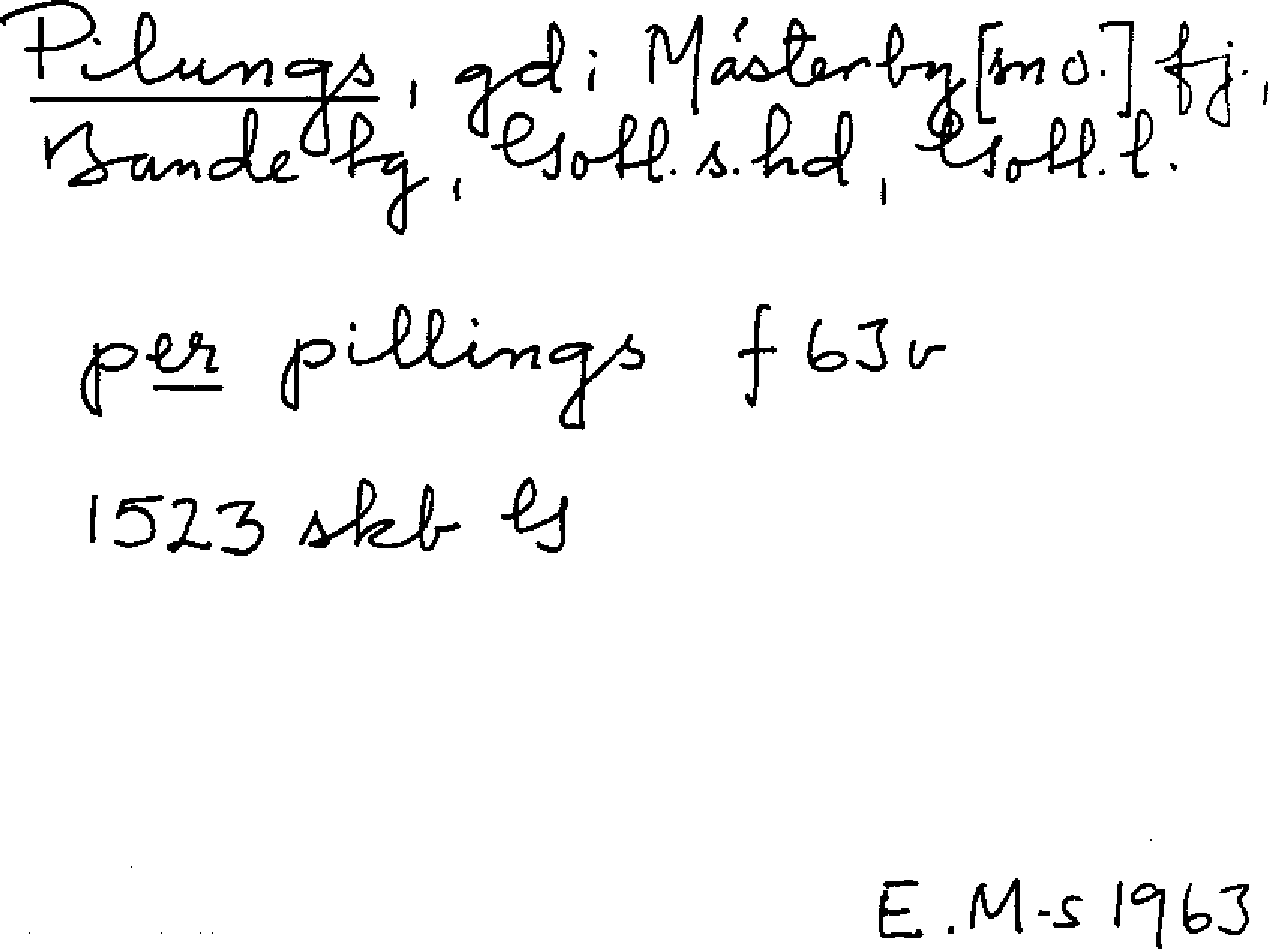 Pilungs, gd i Mästerby [sn o.] fj.,
Banda tg, Gotl. s. hd, Gotl. l.
per pillings f 63v
1523 skb G
E. M-s 1963